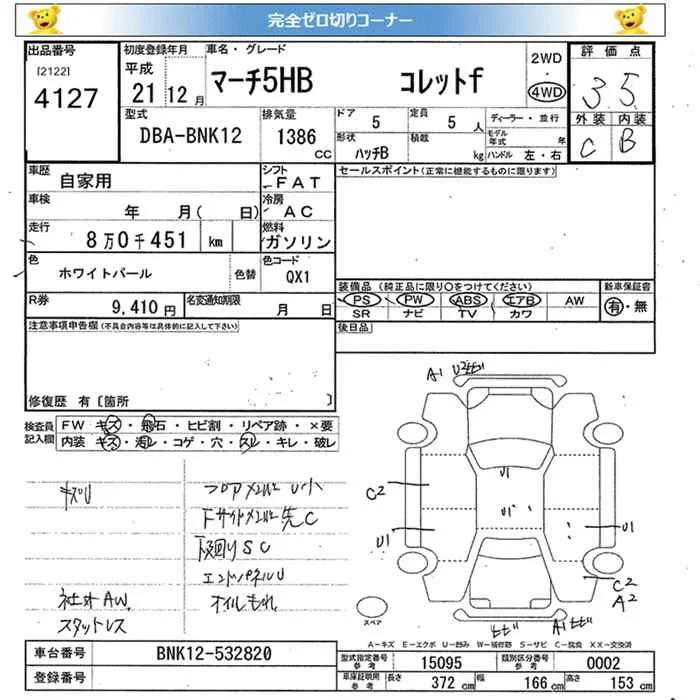 完全ゼロ切りコーナー
出品番号 [2122] 4127
初度登録年月 平成 21 12 月
車名・グレード マーチ5HB コレットf
2WD・4WD
評価点 3.5
外装 内装
C B
型式 DBA-BNK12
排気量 1386 CC
ドア 5 定員 5 人
ディーラー・並行
形状 ハッチB 積載 kg
モデル年式 年
ハンドル 左・右
車歴 自家用
シフト FAT
セールスポイント(正常に機能するものに限ります)
車検 年 月( 日)
冷房 AC
走行 8万0千451 km
燃料 ガソリン
色 ホワイトパール 色替
色コード QX1
装備品 (純正品に限り○をつけてください)
新車保証書
PS PW ABS エアB AW
有・無
SR ナビ TV カワ
R券 9,410 円
名変通知期限 月 日
後日品
注意事項申告欄(不具合内容等は具体的に記入して下さい)
修復歴 有〔箇所 〕
検査員記入欄
FW キズ・飛石・ヒビ割・リペア跡・×要
内装 キズ・汚レ・コゲ・穴・スレ・キレ・破レ
キズU
フロアメンバーU小
下サイドメンバー先C
下回りSC
エンドパネルU
オイルもれ
社外AW
スタットレス
A1 U2ヒビ
U1
U1
C2
U1
U1
C2
A2
ヒビ A1ヒビ
スペア
A-キズ E-エクボ U-凹み W-補修跡 S-サビ C-腐食 XX-交換済
車台番号 BNK12-532820
登録番号
型式指定番号 参考 15095
類別区分番号 参考 0002
車庫証明用 参考 長さ 372 cm 幅 166 cm 高さ 153 cm